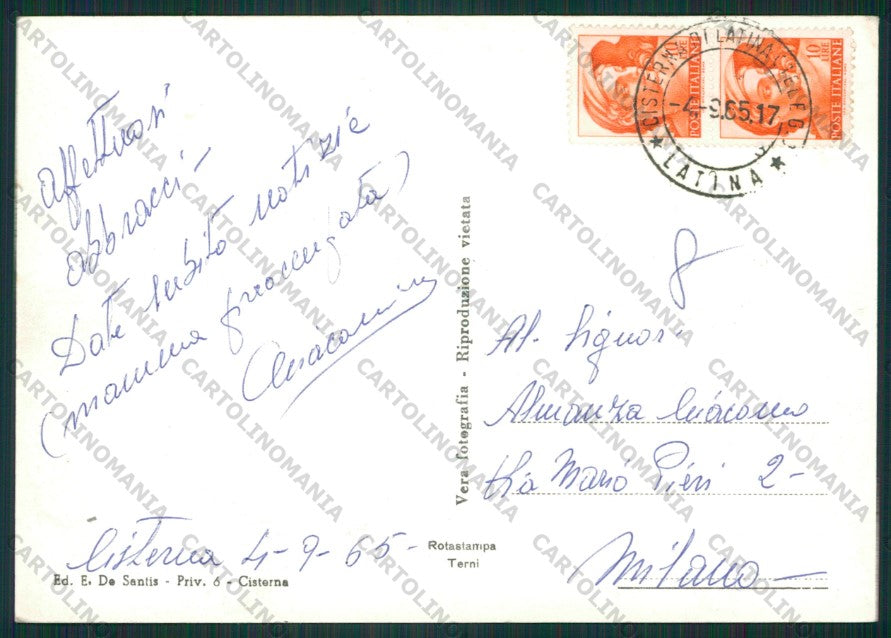 10 LIRE
POSTE ITALIANE
10 LIRE
POSTE ITALIANE
CISTERNA DI LATINA
-4-9.65.17
★ LATINA ★
affettuosi
abbracci -
Date subito notizie
(mamma
8
Al Signor
Almanza Giacomo
Via Mario Pieri 2-
Milano -
Cisterna 4-9-65-
Vera fotografia - Riproduzione vietata
Rotastampa
Terni
Ed. E. De Santis - Priv. 6 - Cisterna
CARTOLINOMANIA